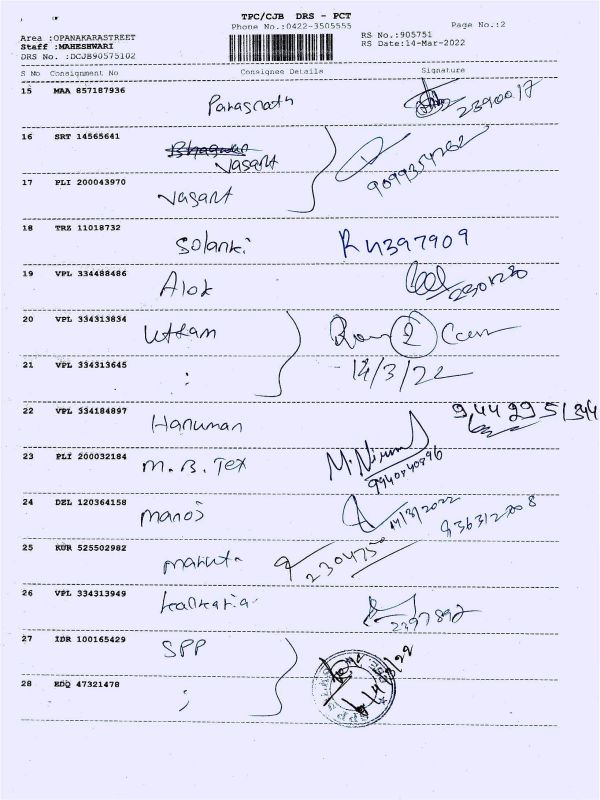 TPC/CJB DRS - PCT
Phone No.:0422-3505555 Page No.:2
Area :OPANAKARASTREET RS No.:905751
Staff :MAHESHWARI RS Date:14-Mar-2022
DRS No. :DCJB90575102
S No Consignment No Consignee Details Signature
15 MAA 857187936 Parasnath 2390017
16 SRT 14565641 Vasant
17 PLI 200043970 Vasant
18 TRZ 11018732 Solanki
19 VPL 334488486 Alok
20 VPL 334313834 Uttam 2
21 VPL 334313645 14/3/22
22 VPL 334184897 Hanuman
23 PLI 200032184 M.B.Tex 9940840896
24 DEL 120364158 Manoj 14/3/2022
25 KUR 525502982
26 VPL 334313949
27 IDR 100165429 SPP
28 EDQ 47321478